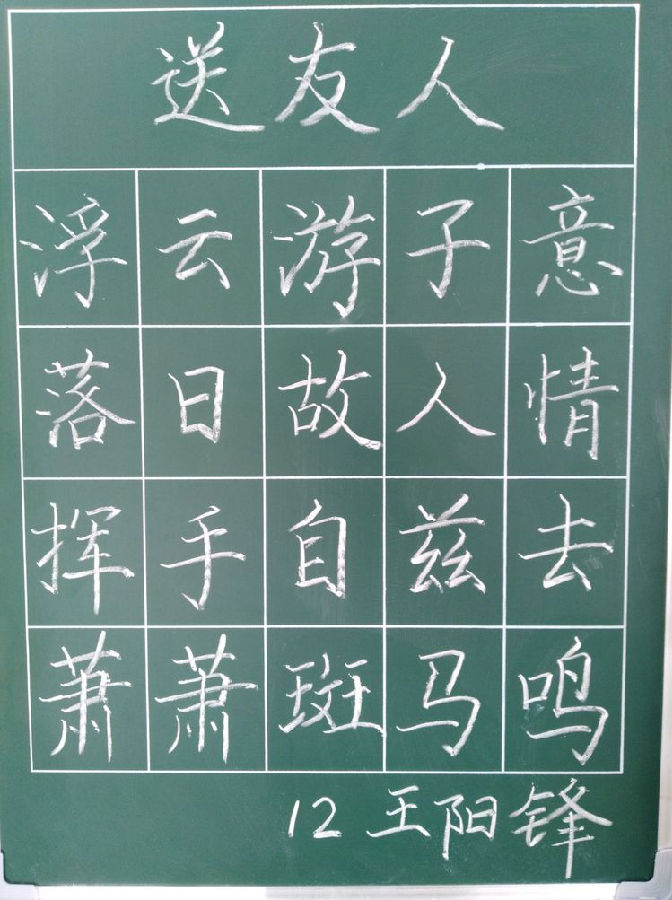 送友人
浮云游子意
落日故人情
挥手自兹去
萧萧斑马鸣
12 王阳锋